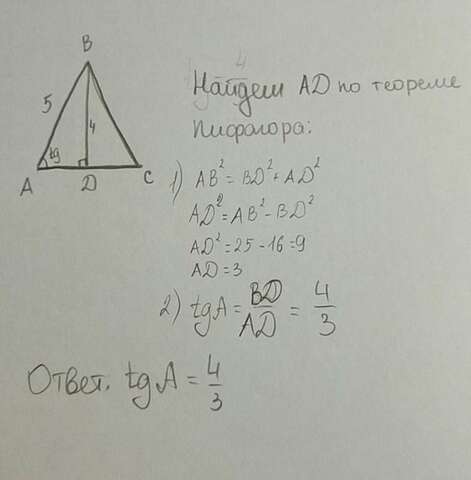 B
5
4
tg
A
D
C
Найдем AD по теореме
Пифагора:
1) AB² = BD² + AD²
AD² = AB² - BD²
AD² = 25 - 16 = 9
AD = 3
2) tg A = BD/AD = 4/3
Ответ. tg A = 4/3